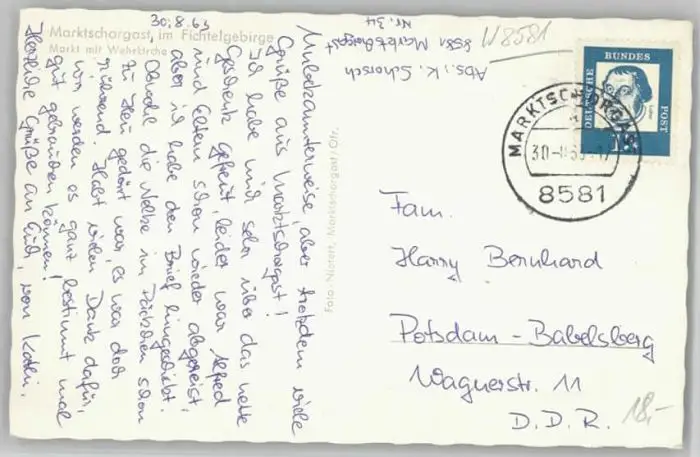 30.8.63
Marktschorgast, im Fichtelgebirge
Markt mit Wehrkirche
W 8581
Abs.: K. Schorsch
8581 Marktschorgast
Nr. 34
DEUTSCHE
BUNDES
POST
15
MARKTSCHORGAST
30.-8.63-17
8581
Unbekannterweise, aber trotzdem viele
Grüße aus Marktschorgast!
Ich habe mich sehr über das nette
Gedenk gefreut, leider war Alfred
und Eltern schon wieder abgereist,
aber ich habe den Brief
Obwohl die Nelke im Päckchen schon
zu Heu gedörrt war, es war doch
rührend. Habt vielen Dank dafür,
wir werden es ganz bestimmt mal
gut gebrauchen können!
Herzliche Grüße an Euch, von
Foto: Marktschorgast/Ofr.
Fam.
Harry Bernhard
Potsdam-Babelsberg
Wagnerstr. 11
D.D.R.
18,-